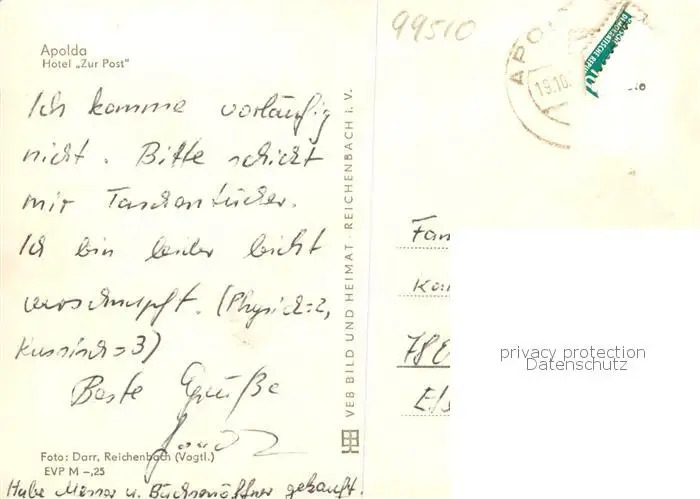 Apolda
Hotel „Zur Post"
Ich komme vorläufig
nicht. Bitte schickt
mir Taschentücher.
Ich bin leider leicht
verschnupft. (Physik=2,
Russisch=3)
Beste Grüße
Foto: Darr, Reichenbach (Vogtl.)
EVP M –,25
Habe Messer u. Büchsenöffner gekauft.
VEB BILD UND HEIMAT · REICHENBACH i. V.
99510
APO
19.10.
DEMOKRATISCHE REPU
Fam
privacy protection
Datenschutz